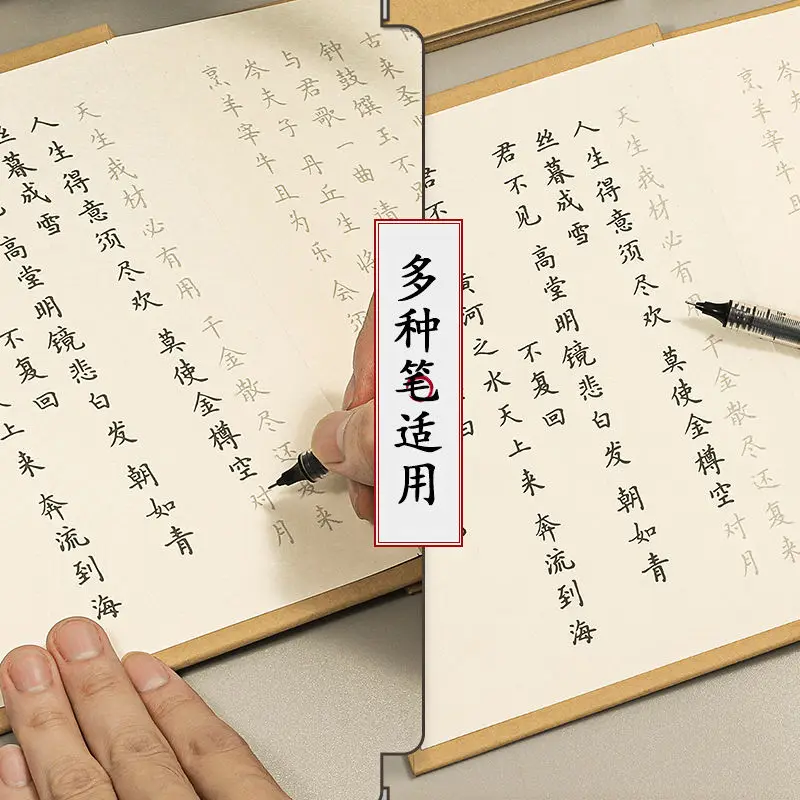 上来 奔流到海
不复回
高堂明镜悲白发 朝如青
丝暮成雪
人生得意须尽欢 莫使金樽空对月
天生我材必有用 千金散尽还复来
烹羊宰牛且为乐 会须
岑夫子 丹丘生 将
与君歌一曲 请
钟鼓馔玉不
古来圣
多种笔适用
君不
黄河之水天上来 奔流到海
不复回
君不见 高堂明镜悲白发 朝如青
丝暮成雪
人生得意须尽欢 莫使金樽空对月
天生我材必有用 千金散尽还复来
烹羊宰牛且
岑夫